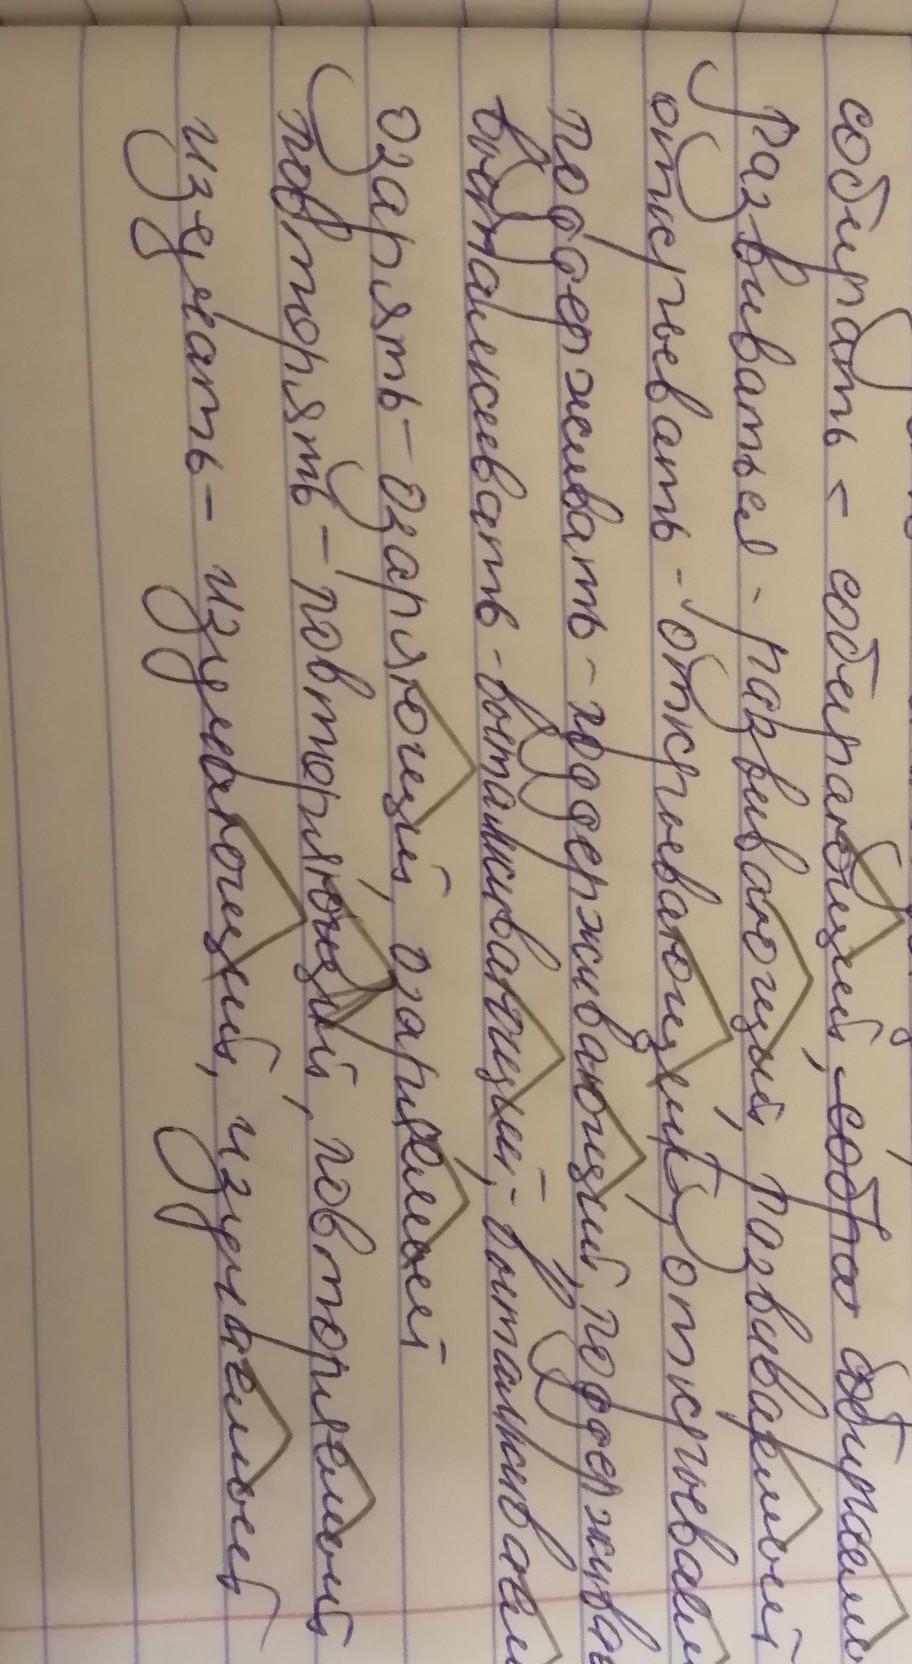 собирать - собирающий, собира собираемы
развиваться - развивающий, развиваемый
открывать - открывающий, открываем
поддерживать - поддерживающий, поддержива
выталкивать - выталкивающий, - выталкиваем
озарять - озаряющий, озаряемый
повторять - повторяющий, повторяемый
изучать - изучающий, изучаемый